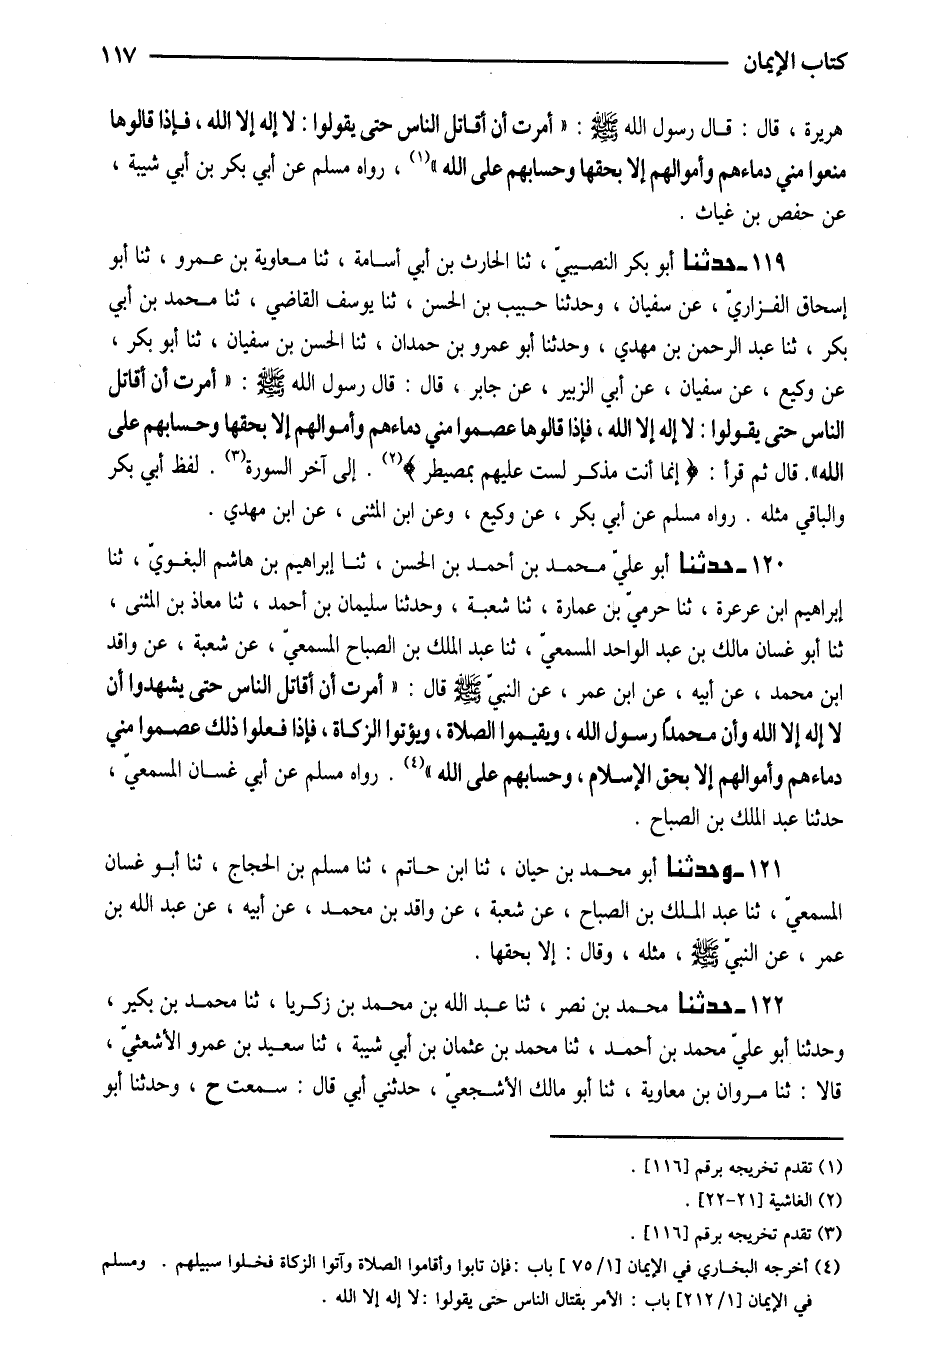 كتاب الإيمان ١١٧
هريرة ، قال : قال رسول الله ﷺ : « أمرت أن أقاتل الناس حتى يقولوا : لا إله إلا الله ، فإذا قالوها
منعوا مني دماءهم وأموالهم إلا بحقها وحسابهم على الله »(١) ، رواه مسلم عن أبي بكر بن أبي شيبة ،
عن حفص بن غياث .
١١٩ـ حدثنا أبو بكر النصيبيّ ، ثنا الحارث بن أبي أسامة ، ثنا معاوية بن عمرو ، ثنا أبو
إسحاق الفزاريّ ، عن سفيان ، وحدثنا حبيب بن الحسن ، ثنا يوسف القاضي ، ثنا محمد بن أبي
بكر ، ثنا عبد الرحمن بن مهدي ، وحدثنا أبو عمرو بن حمدان ، ثنا الحسن بن سفيان ، ثنا أبو بكر ،
عن وكيع ، عن سفيان ، عن أبي الزبير ، عن جابر ، قال : قال رسول الله ﷺ : « أمرت أن أقاتل
الناس حتى يقولوا : لا إله إلا الله ، فإذا قالوها عصموا مني دماءهم وأموالهم إلا بحقها وحسابهم على
الله». قال ثم قرأ : ﴿ إنما أنت مذكر لست عليهم بمصيطر ﴾(٢) . إلى آخر السورة(٣) . لفظ أبي بكر
والباقي مثله . رواه مسلم عن أبي بكر ، عن وكيع ، وعن ابن المثنى ، عن ابن مهدي .
١٢٠ـ حدثنا أبو عليّ محمد بن أحمد بن الحسن ، ثنا إبراهيم بن هاشم البغويّ ، ثنا
إبراهيم ابن عرعرة ، ثنا حرميّ بن عمارة ، ثنا شعبة ، وحدثنا سليمان بن أحمد ، ثنا معاذ بن المثنى ،
ثنا أبو غسان مالك بن عبد الواحد المسمعيّ ، ثنا عبد الملك بن الصباح المسمعيّ ، عن شعبة ، عن واقد
ابن محمد ، عن أبيه ، عن ابن عمر ، عن النبيّ ﷺ قال : « أمرت أن أقاتل الناس حتى يشهدوا أن
لا إله إلا الله وأن محمداً رسول الله ، ويقيموا الصلاة ، ويؤتوا الزكاة ، فإذا فعلوا ذلك عصموا مني
دماءهم وأموالهم إلا بحق الإسلام ، وحسابهم على الله »(٤) . رواه مسلم عن أبي غسان المسمعيّ ،
حدثنا عبد الملك بن الصباح .
١٢١ـ وحدثنا أبو محمد بن حيان ، ثنا ابن حاتم ، ثنا مسلم بن الحجاج ، ثنا أبو غسان
المسمعيّ ، ثنا عبد الملك بن الصباح ، عن شعبة ، عن واقد بن محمد ، عن أبيه ، عن عبد الله بن
عمر ، عن النبيّ ﷺ ، مثله ، وقال : إلا بحقها .
١٢٢ـ حدثنا محمد بن نصر ، ثنا عبد الله بن محمد بن زكريا ، ثنا محمد بن بكير ،
وحدثنا أبو عليّ محمد بن أحمد ، ثنا محمد بن عثمان بن أبي شيبة ، ثنا سعيد بن عمرو الأشعثيّ ،
قالا : ثنا مروان بن معاوية ، ثنا أبو مالك الأشجعيّ ، حدثني أبي قال : سمعت ح ، وحدثنا أبو
(١) تقدم تخريجه برقم [١١٦] .
(٢) الغاشية [٢١-٢٢] .
(٣) تقدم تخريجه برقم [١١٦] .
(٤) أخرجه البخاري في الإيمان [١/ ٧٥ ] باب :فإن تابوا وأقاموا الصلاة وآتوا الزكاة فخلوا سبيلهم . ومسلم
في الإيمان [١/ ٢١٢] باب : الأمر بقتال الناس حتى يقولوا :لا إله إلا الله .